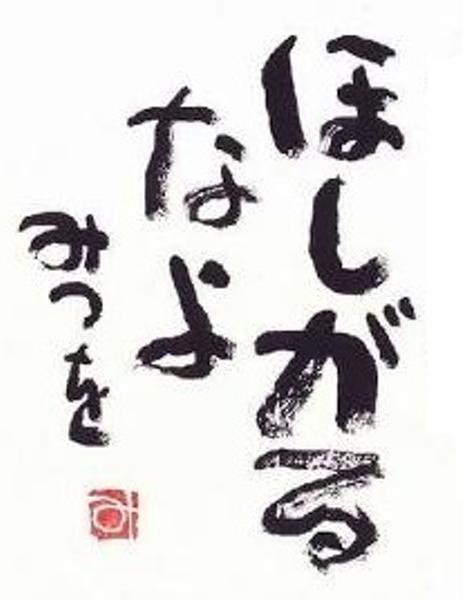 ほしがる
なよ
みつを